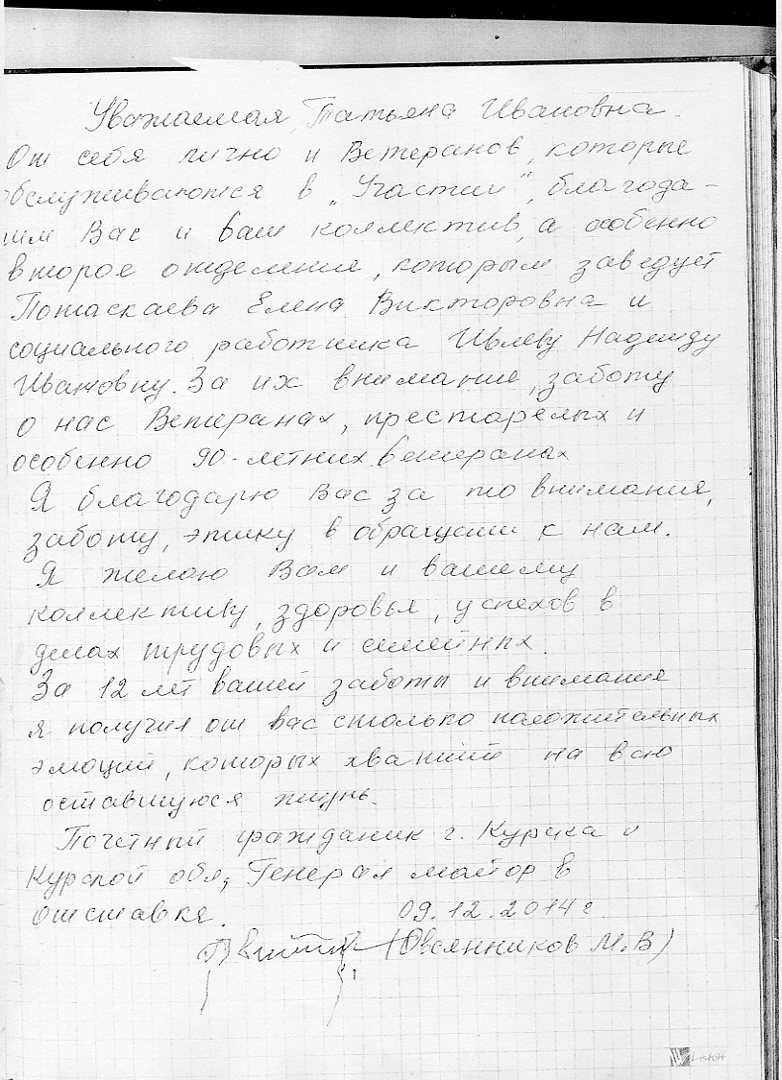 Уважаемая Татьяна Ивановна.
От себя лично и Ветеранов, которые
обслуживаются в "Участии", благода-
рим Вас и ваш коллектив, а особенно
второе отделение, которым заведует
Потаскаева Елена Викторовна и
социального работника Ивлеву Надежду
Ивановну. За их внимание, заботу
о нас Ветеранах, престарелых и
особенно 90-летних ветеранах
Я благодарю Вас за то внимания,
заботу, этику в обращении к нам.
Я желаю Вам и вашему
коллективу, здоровья, успехов в
делах трудовых и семейных.
За 12 лет вашей заботы и внимания
я получил от вас столько положительных
эмоций, которых хватит на всю
оставшуюся жизнь.
Почетный гражданин г. Курска и
Курской обл, Генерал майор в
отставке. 09.12.2014 г
(Овсянников М.В)
Listoff